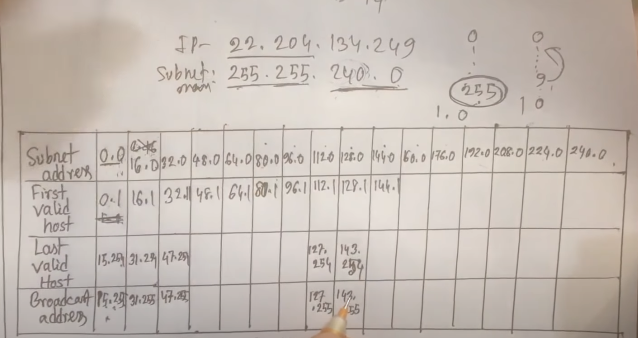 IP- 22.204.134.249
Subnet mask: 255.255.240.0
0 0
255 9
1.0 10
Subnet address 0.0 16.0 32.0 48.0 64.0 80.0 96.0 112.0 128.0 144.0 160.0 176.0 192.0 208.0 224.0 240.0
First valid host 0.1 16.1 32.1 48.1 64.1 80.1 96.1 112.1 128.1 144.1
Last valid Host 127.254 143.254
Broadcast address 31.255 47.255 127.255